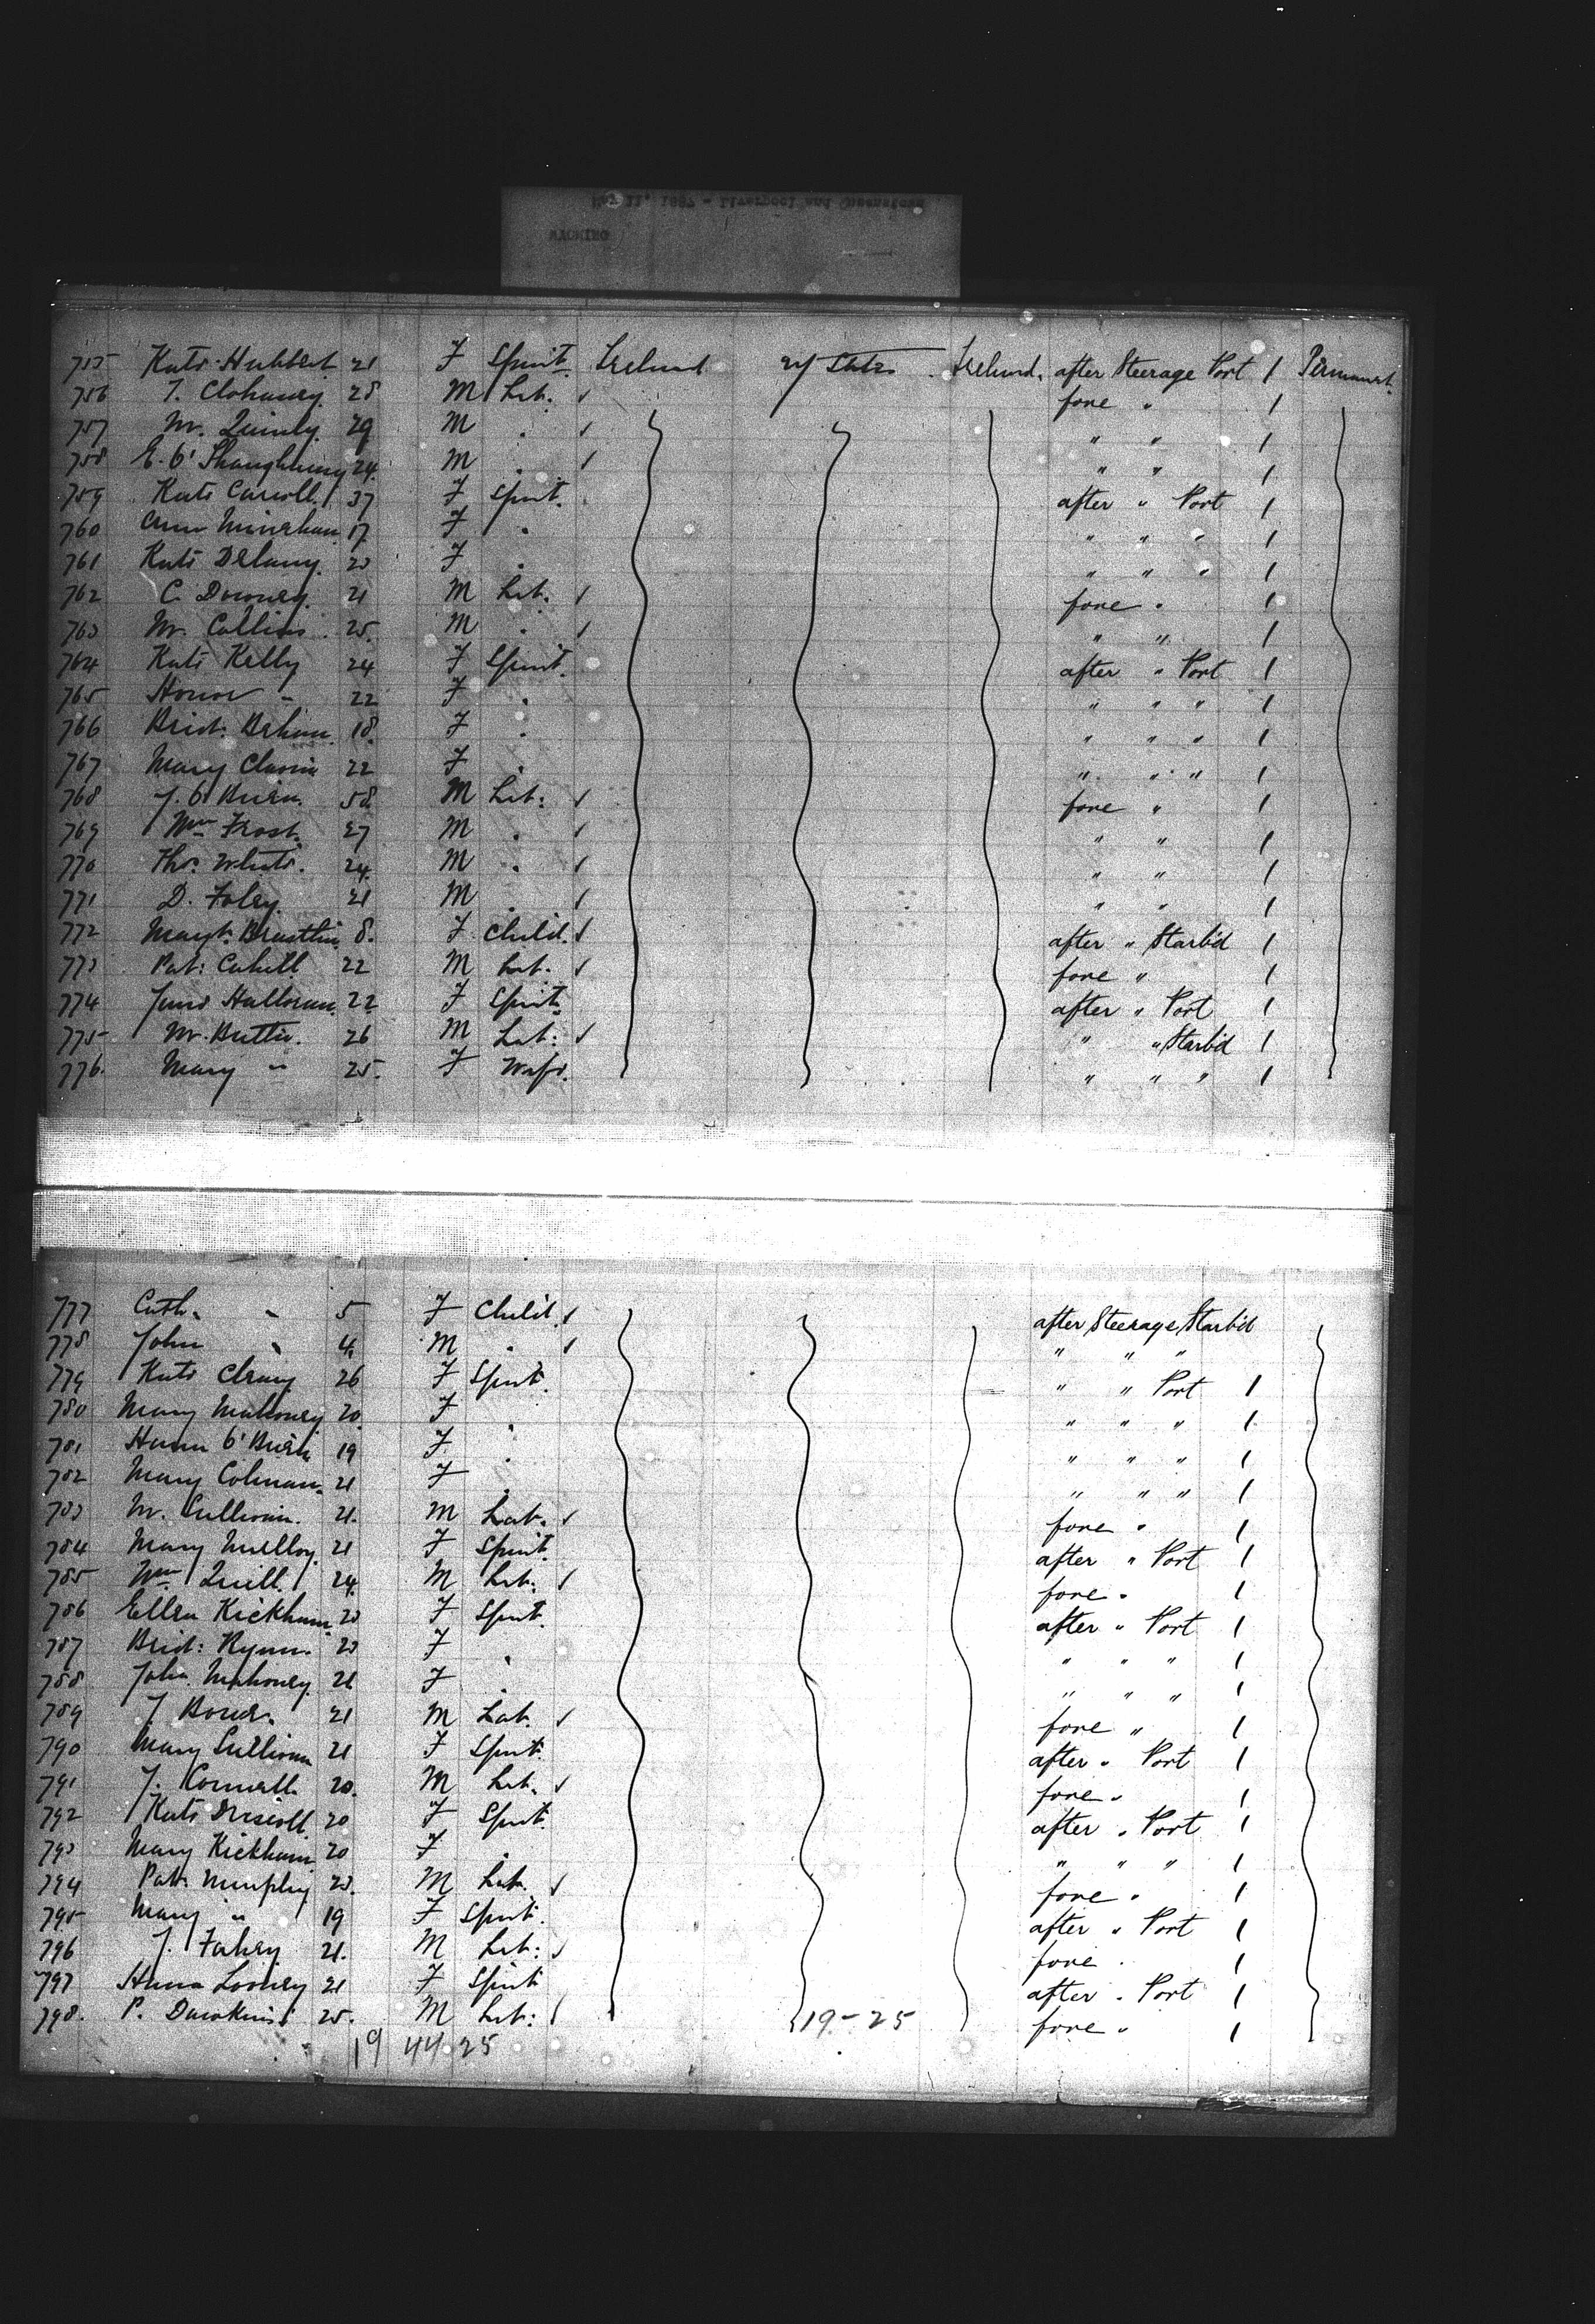 May 11, 1887 - Liverpool and Queenstown
WYOMING
755 Kate Hubbert 21 F Spinst. Ireland U States Ireland. after Steerage Port 1 Permanent.
756 T. Clohessy. 28 M Lab. fore " 1
757 M. Quinly. 29 M . " " 1
758 E. O'Shaughnessy 24. M . " " 1
759 Kate Carroll. 37 F Spinst. after " Port 1
760 Ann Minehan 17. F . " " " 1
761 Kate Delany. 20 F . " " " 1
762 C. Downey. 21 M Lab. fore " 1
763 M. Collins. 25. M . " " 1
764 Kate Kelly 24 F Spinst. after " Port 1
765 Honor " 22 F . " " " 1
766 Brid. Behan. 18. F . " " " 1
767 Mary 22 F . " " " 1
768 J. O'Brien. 58. M Lab: fore " 1
769 Wm Frost. 27 M . " " 1
770 Thos. White. 24. M . " " 1
771 D. Foley. 21 M . " " 1
772 Margt. 8. F Child. after " Starb'd 1
773 Pat: Cahill 22 M Lab. fore " 1
774 Halloran. 22. F Spinst. after " Port 1
775 M. Butler. 26 M Lab: " " Starb'd 1
776. Mary " 25. F Wife. " " " 1
777 Cath. " 5 F Child. after Steerage Starb'd
778 John " 4. M . " " "
779 Kate Cleary 26 F Spinst. " " Port 1
780 Mary Mahoney 20. F . " " " 1
781 Hanna O'Brien 19 F . " " " 1
782 Mary Colman. 21 F . " " " 1
783 M. Sullivan. 21. M Lab. fore " 1
784 Mary 21 F Spinst. after " Port 1
785 Wm Quill. 24. M Lab: fore " 1
786 Ellen Kickham. 20 F Spinst. after " Port 1
787 Brid: Ryan. 20 F . " " " 1
788 Joha. Mahoney. 21 F . " " " 1
789 J. 21 M Lab. fore " 1
790 Mary Sullivan 21 F Spinst. after " Port 1
791 J. Connell. 20. M Lab. fore " 1
792 Kate Driscoll. 20 F Spinst. after " Port 1
793 Mary Kickham. 20 F . " " " 1
794 Patk. Murphy 20. M Lab. fore " 1
795 Mary " 19 F Spinst. after " Port 1
796 J. Fahey 21. M Lab: fore . 1
797 Hana Looney 21 F Spinst after . Port 1
798. P. Dawkins 25. M Lab: 19-25 fore " 1
19 44 25